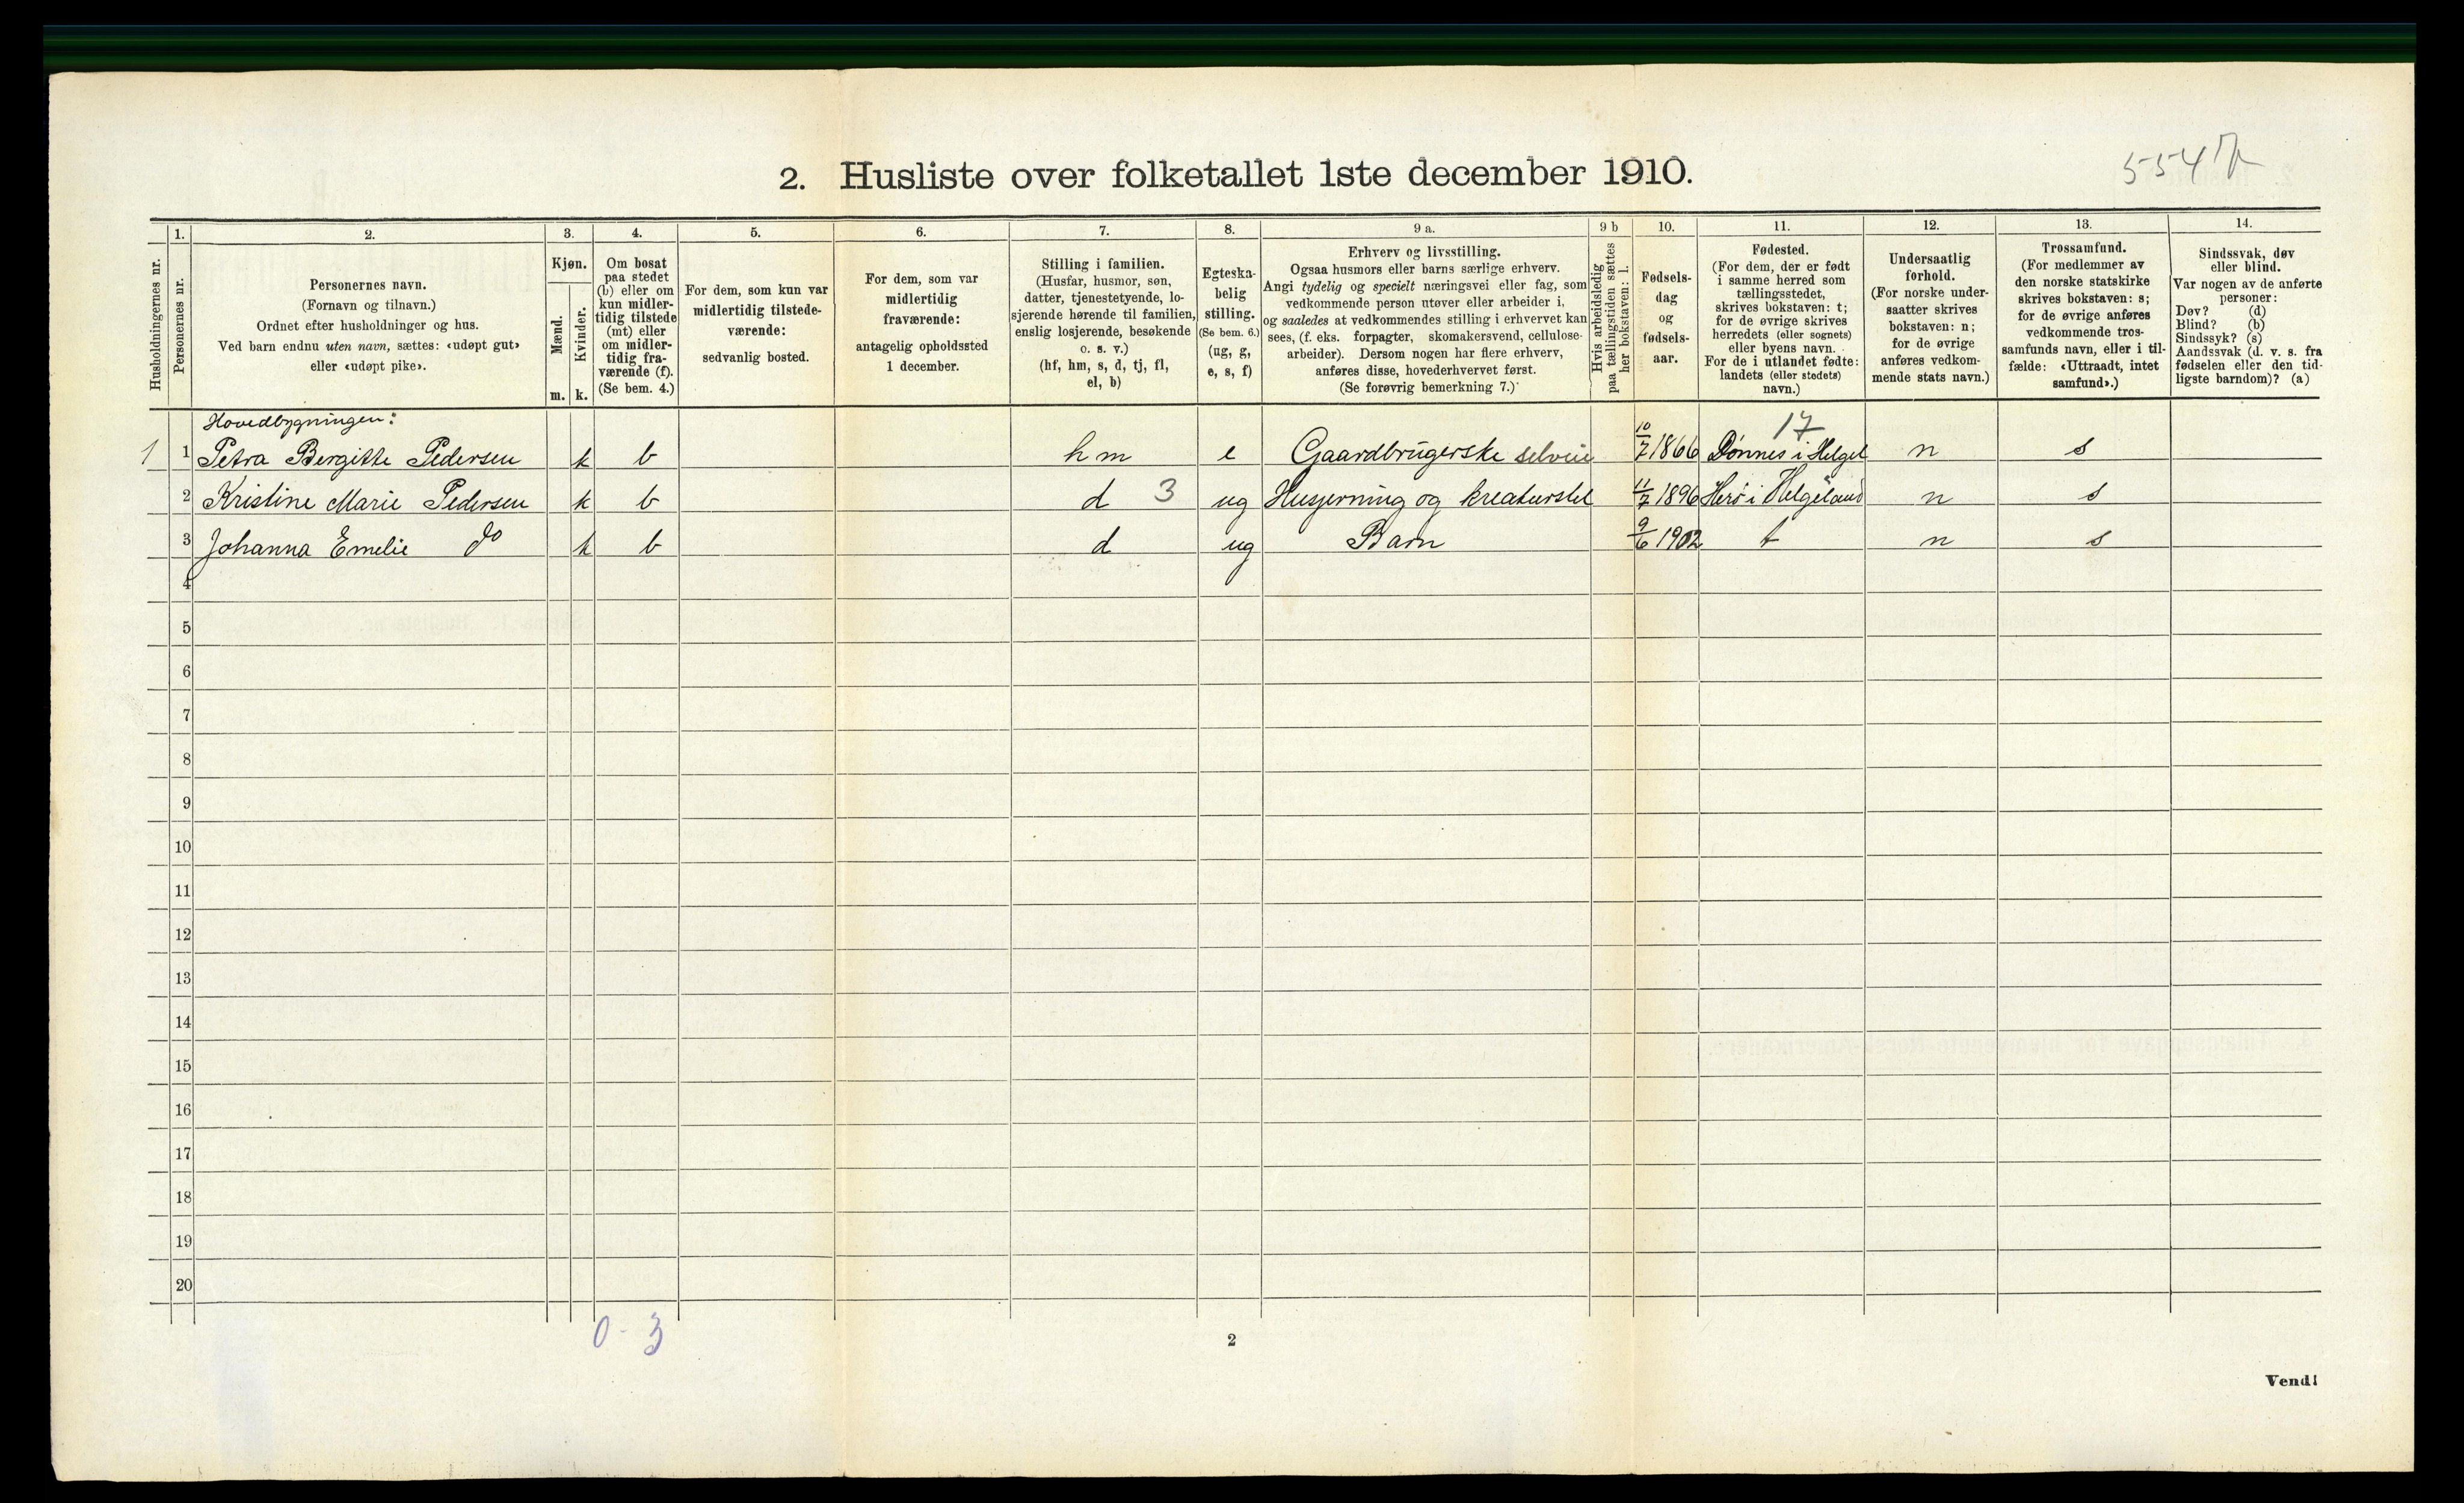 2. Husliste over folketallet 1ste december 1910.
1. 2. 3. 4. 5. 6. 7. 8. 9 a. 9 b 10. 11. 12. 13. 14.
Husholdningernes nr.
Personernes nr.
Personernes navn.
(Fornavn og tilnavn.)
Ordnet efter husholdninger og hus.
Ved barn endnu uten navn, sættes: «udøpt gut»
eller «udøpt pike».
Kjøn.
Mænd.
Kvinder.
m. k.
Om bosat
paa stedet
(b) eller om
kun midler-
tidig tilstede
(mt) eller
om midler-
tidig fra-
værende (f).
(Se bem. 4.)
For dem, som kun var
midlertidig tilstede-
værende:
sedvanlig bosted.
For dem, som var
midlertidig
fraværende:
antagelig opholdssted
1 december.
Stilling i familien.
(Husfar, husmor, søn,
datter, tjenestetyende, lo-
sjerende hørende til familien,
enslig losjerende, besøkende
o. s. v.)
(hf, hm, s, d, tj, fl,
el, b)
Egteska-
belig
stilling.
(Se bem. 6.)
(ug, g,
e, s, f)
Erhverv og livsstilling.
Ogsaa husmors eller barns særlige erhverv.
Angi tydelig og specielt næringsvei eller fag, som
vedkommende person utøver eller arbeider i,
og saaledes at vedkommendes stilling i erhvervet kan
sees, (f. eks. forpagter, skomakersvend, cellulose-
arbeider). Dersom nogen har flere erhverv,
anføres disse, hovederhvervet først.
(Se forøvrig bemerkning 7.)
Hvis arbeidsledig
paa tællingstiden sættes
her bokstaven: l.
Fødsels-
dag
og
fødsels-
aar.
Fødested.
(For dem, der er født
i samme herred som
tællingsstedet,
skrives bokstaven: t;
for de øvrige skrives
herredets (eller sognets)
eller byens navn.
For de i utlandet fødte:
landets (eller stedets)
navn.)
Undersaatlig
forhold.
(For norske under-
saatter skrives
bokstaven: n;
for de øvrige
anføres vedkom-
mende stats navn.)
Trossamfund.
(For medlemmer av
den norske statskirke
skrives bokstaven: s;
for de øvrige anføres
vedkommende tros-
samfunds navn, eller i til-
fælde: «Uttraadt, intet
samfund».)
Sindssvak, døv
eller blind.
Var nogen av de anførte
personer:
Døv? (d)
Blind? (b)
Sindssyk? (s)
Aandssvak (d. v. s. fra
fødselen eller den tid-
ligste barndom)? (a)
Hovedbygningen: 17
1 1 Petra Bergitte Pedersen k b hm e Gaardbrugerske selveie 10/7 1866 Dønnes i Helgel n s
2 Kristine Marie Pedersen k b d 3 ug Husjerning og kreaturstel 11/7 1896 Herø i Helgeland n s
3 Johanna Emelie do k b d ug Barn 9/6 1902 t n s
4
5
6
7
8
9
10
11
12
13
14
15
16
17
18
19
20
0 - 3
2
Vend!